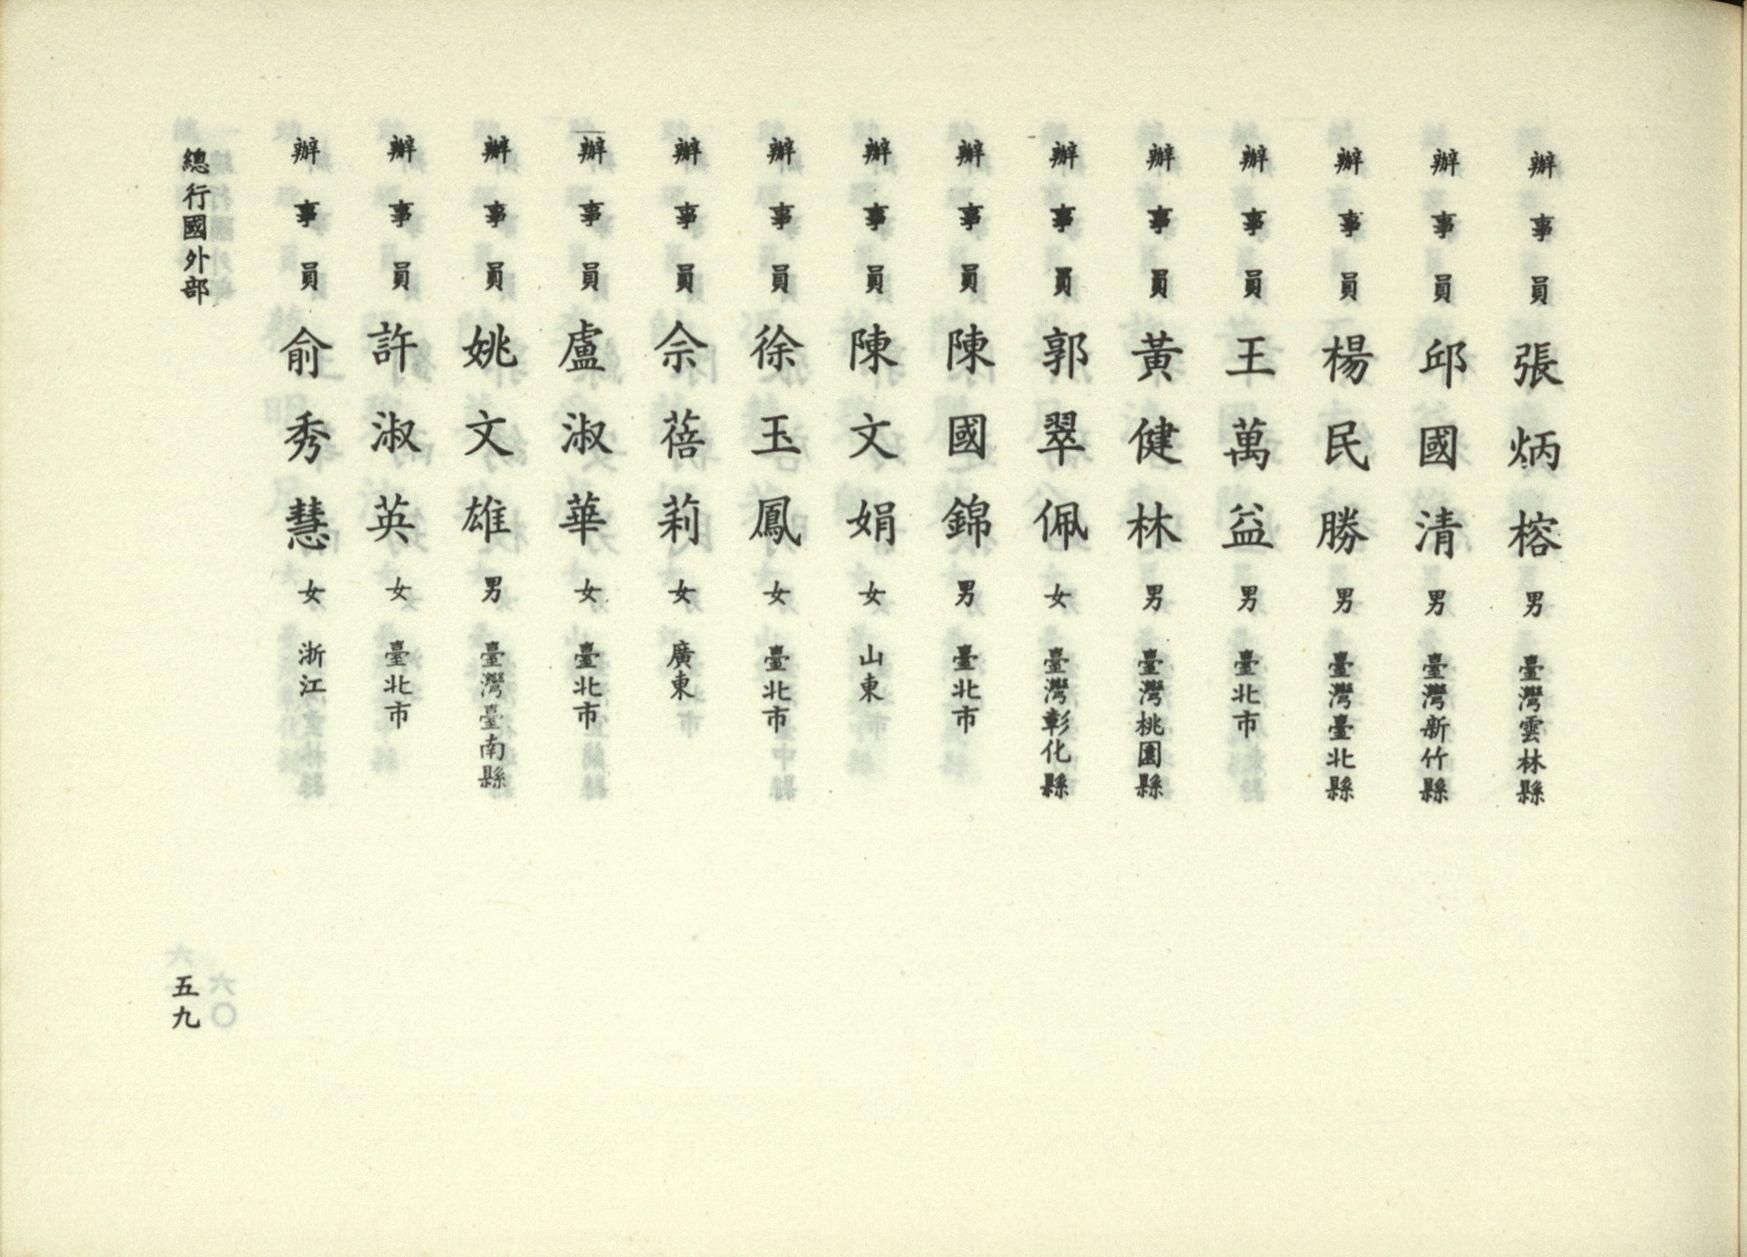 辦事員 張炳榕 男 臺灣雲林縣
辦事員 邱國清 男 臺灣新竹縣
辦事員 楊民勝 男 臺灣臺北縣
辦事員 王萬益 男 臺北市
辦事員 黃健林 男 臺灣桃園縣
辦事員 郭翠佩 女 臺灣彰化縣
辦事員 陳國錦 男 臺北市
辦事員 陳文娟 女 山東
辦事員 徐玉鳳 女 臺北市
辦事員 佘蓓莉 女 廣東
辦事員 盧淑華 女 臺北市
辦事員 姚文雄 男 臺灣臺南縣
辦事員 許淑英 女 臺北市
辦事員 俞秀慧 女 浙江
總行國外部
五九